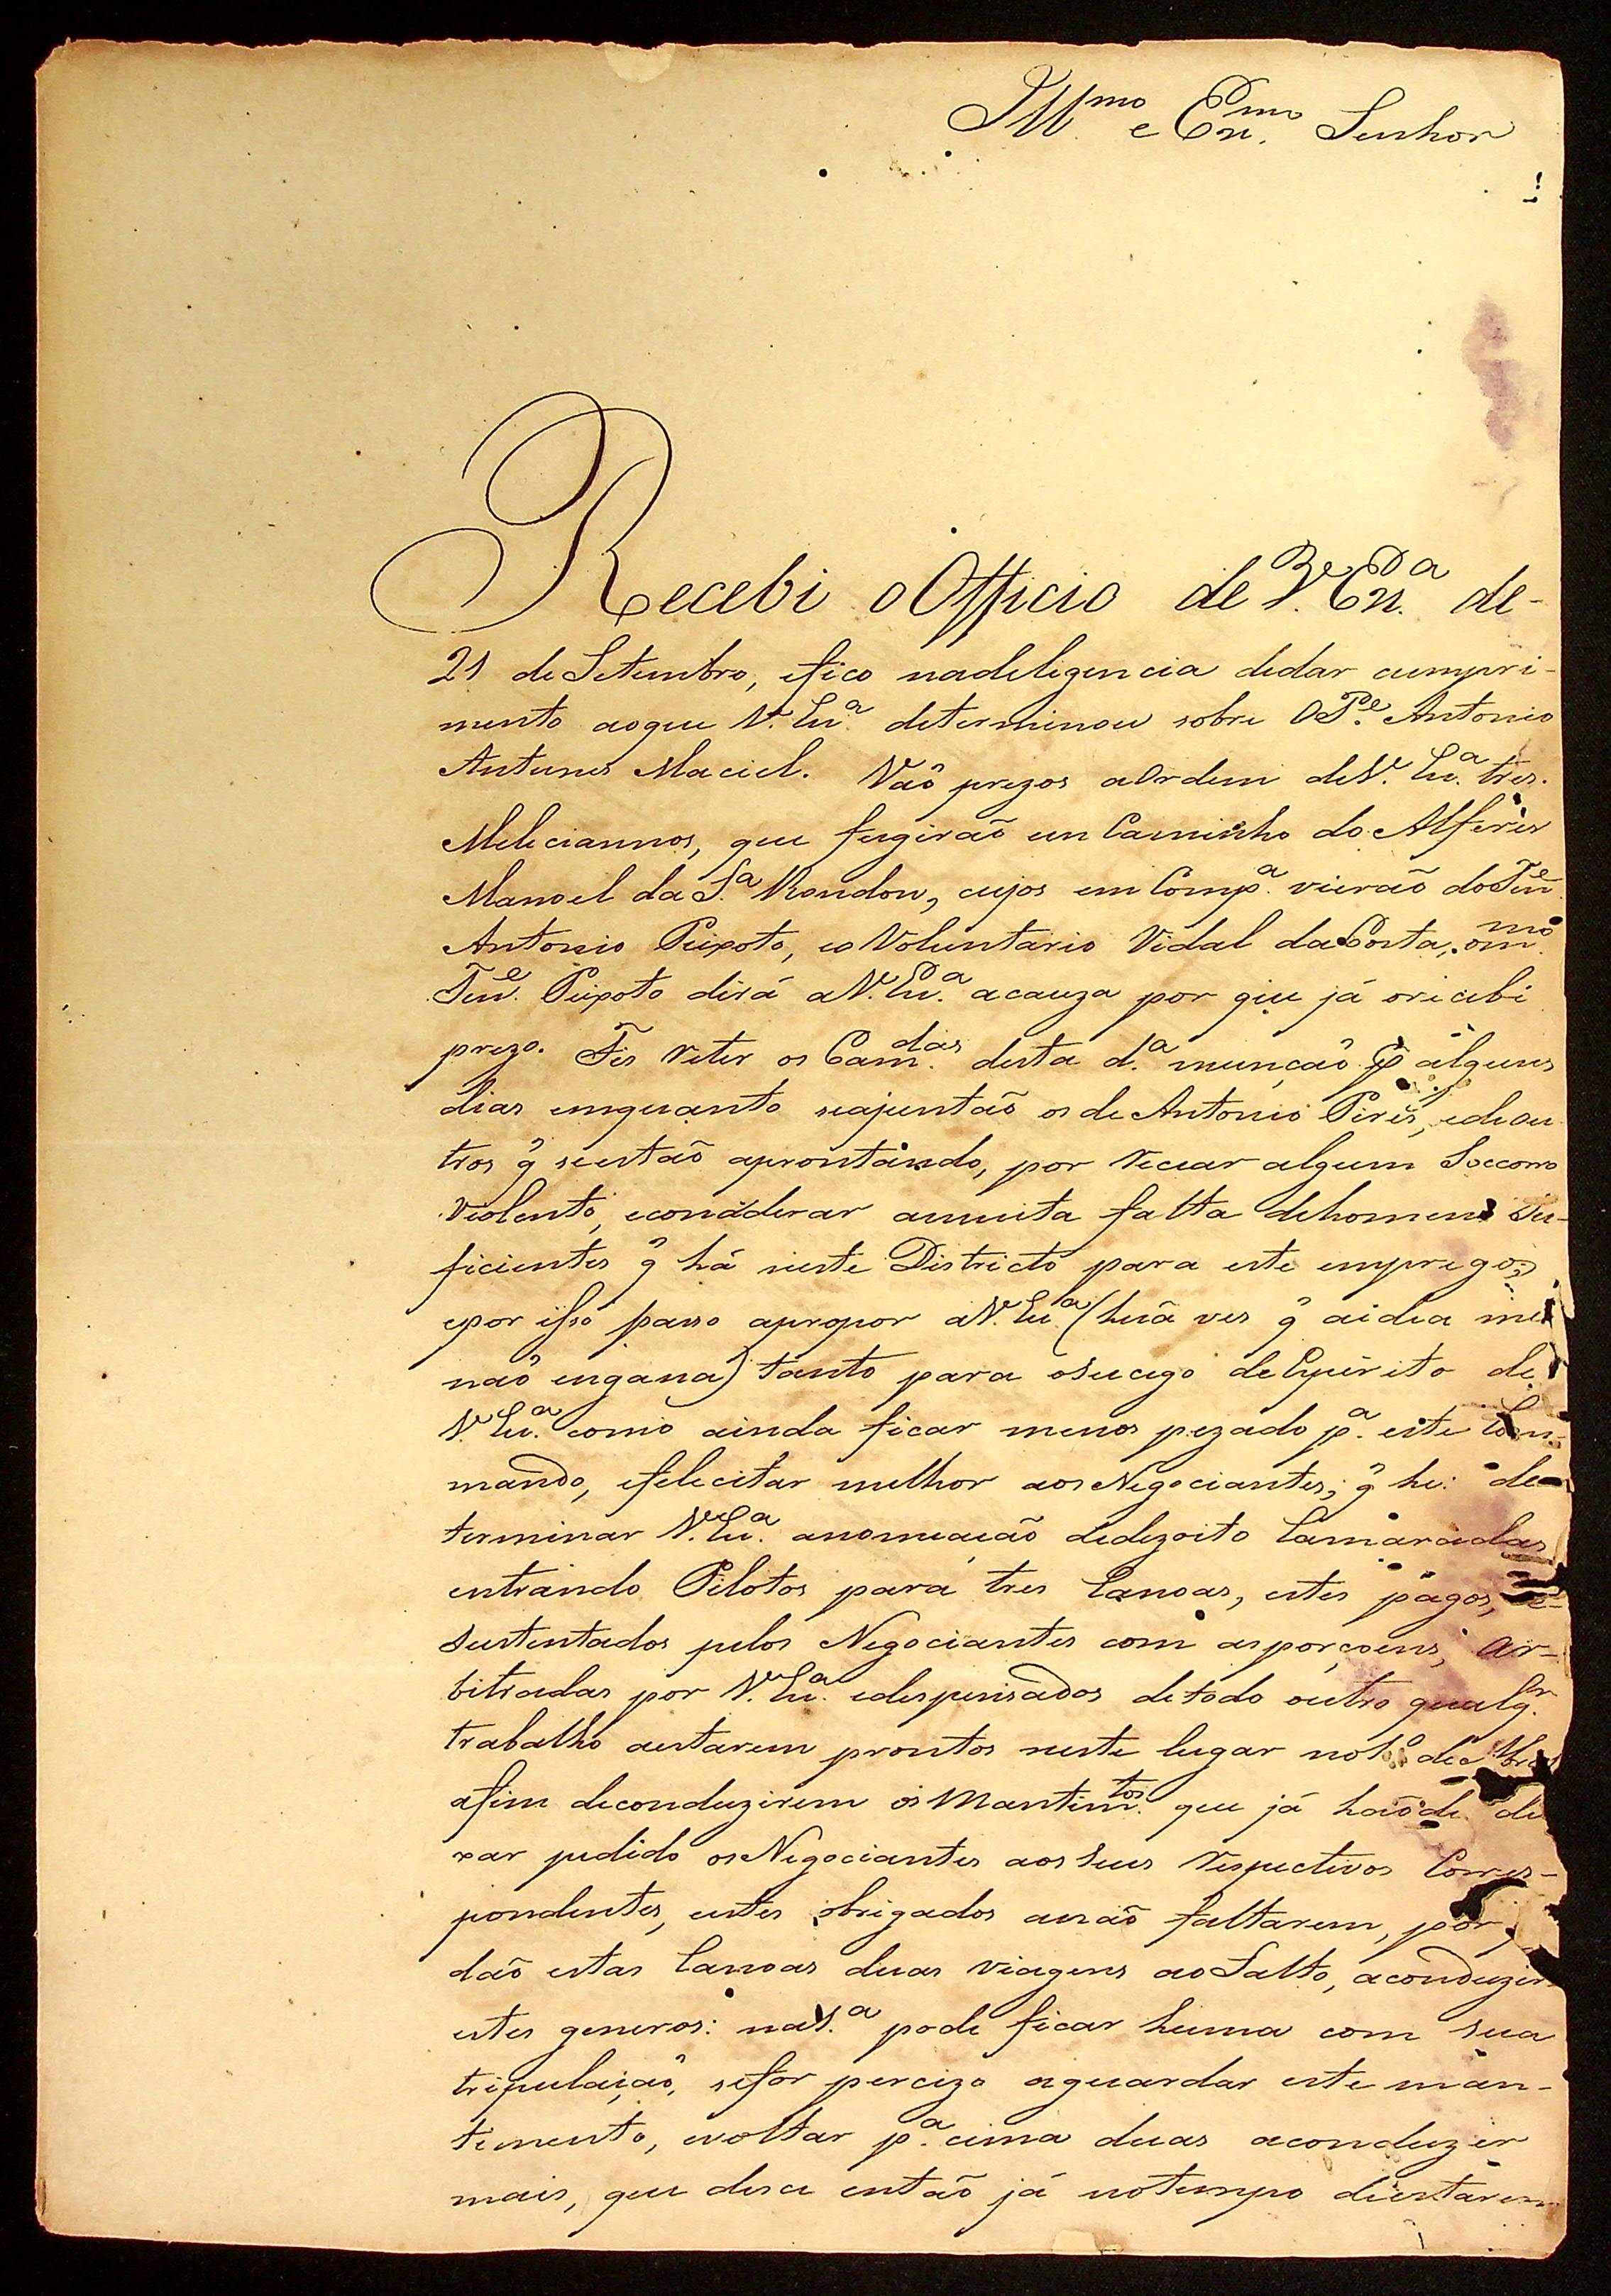 Ill.mo e Ex.mo Senhor
Recebi o Officio de V. Ex.a de-
21 de Setembro, efico nadeligencia dedar cumpri-
mento aoque V. Ex.a determinou sobre O P.e Antonio
Antunes Maciel. Vaõ prezos aOrdem deV. Ex.a tres.
Meleciannos, que fugiraõ em Caminho do Alferes
Manoel da S.a Rondon, cujos em Comp.a vieraõ do Ten.e
Antonio Peixoto, eo Voluntario Vidal da Costa, o m.mo
Ten.e Peixoto dirá aV. Ex.a acauza por que já orecebi
prezo. Fis reter os Cam.das desta d.a munçaõ p alguns
dias emquanto seajuntaõ os de Antonio Pires, edeou
tros q̃ seestaõ aprontando, por receiar algum Soccorro
violento, econsiderar amuita falta dehomens Su-
ficientes q̃ há neste Districto para este emprego;
epor isso passo apropor aV. Ex.a (huã ves q̃ aidea me
naõ engana) tanto para oSucego deEspirito de
V. Ex.a como ainda ficar menos pezado p.a este Com-
mando, efelecitar melhor aos Negociantes; q̃ he: de
terminar V. Ex.a anomeaçaõ dedezoito Camaradas
entrando Pilotos para tres Canoas, estes pagos, e-
Sustentados pelos Negociantes com as porçoens, ar-
bitradas por V. Ex.a edespensados detodo outro qualq.r
trabalho aestarem prontos neste lugar no
afim deconduzirem os Mantim.tos que já haõde dei
xar pedido os Negociantes aos seus respectivos Corres-
pondentes, estes obrigados anaõ faltarem, por
daõ estas Canoas duas viagens ao Salto, aconduzir
estes generos: na S.a pode ficar huma com sua
tripulaçaõ, sefor percizo aguardar este man-
temento, evoltar p.a cima duas aconduzir
mais, que desce entaõ já notempo deestarem